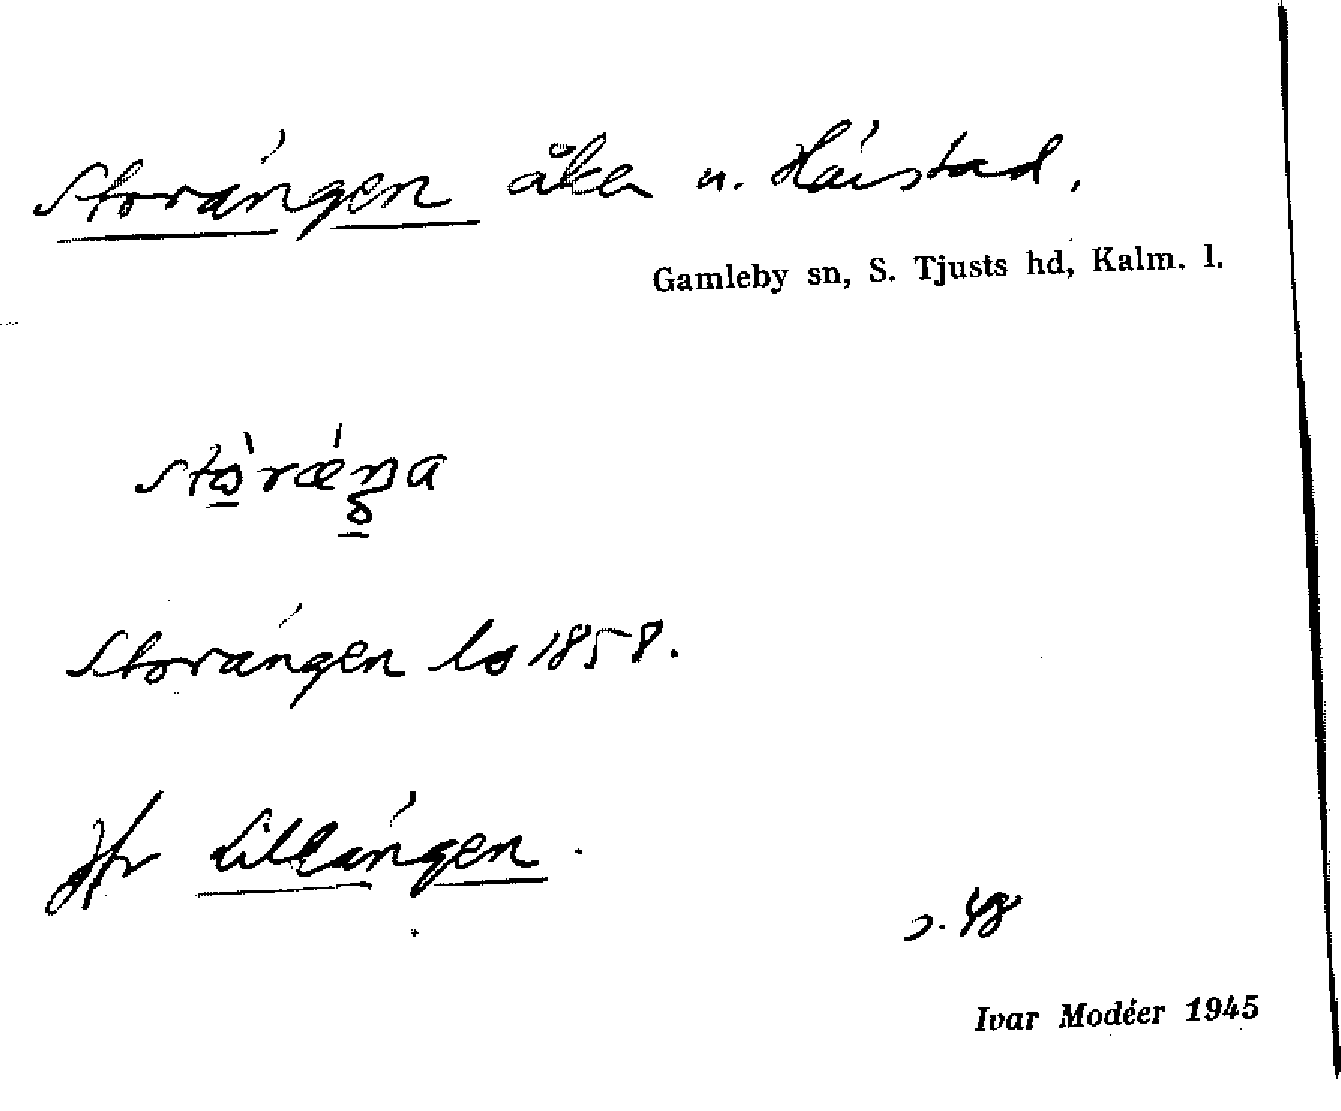 Storängen åker u. Härstad.
Gamleby sn, S. Tjusts hd, Kalm. l.
Storängen ls 1858.
Jfr Lillängen.
s. 48
Ivar Modéer 1945